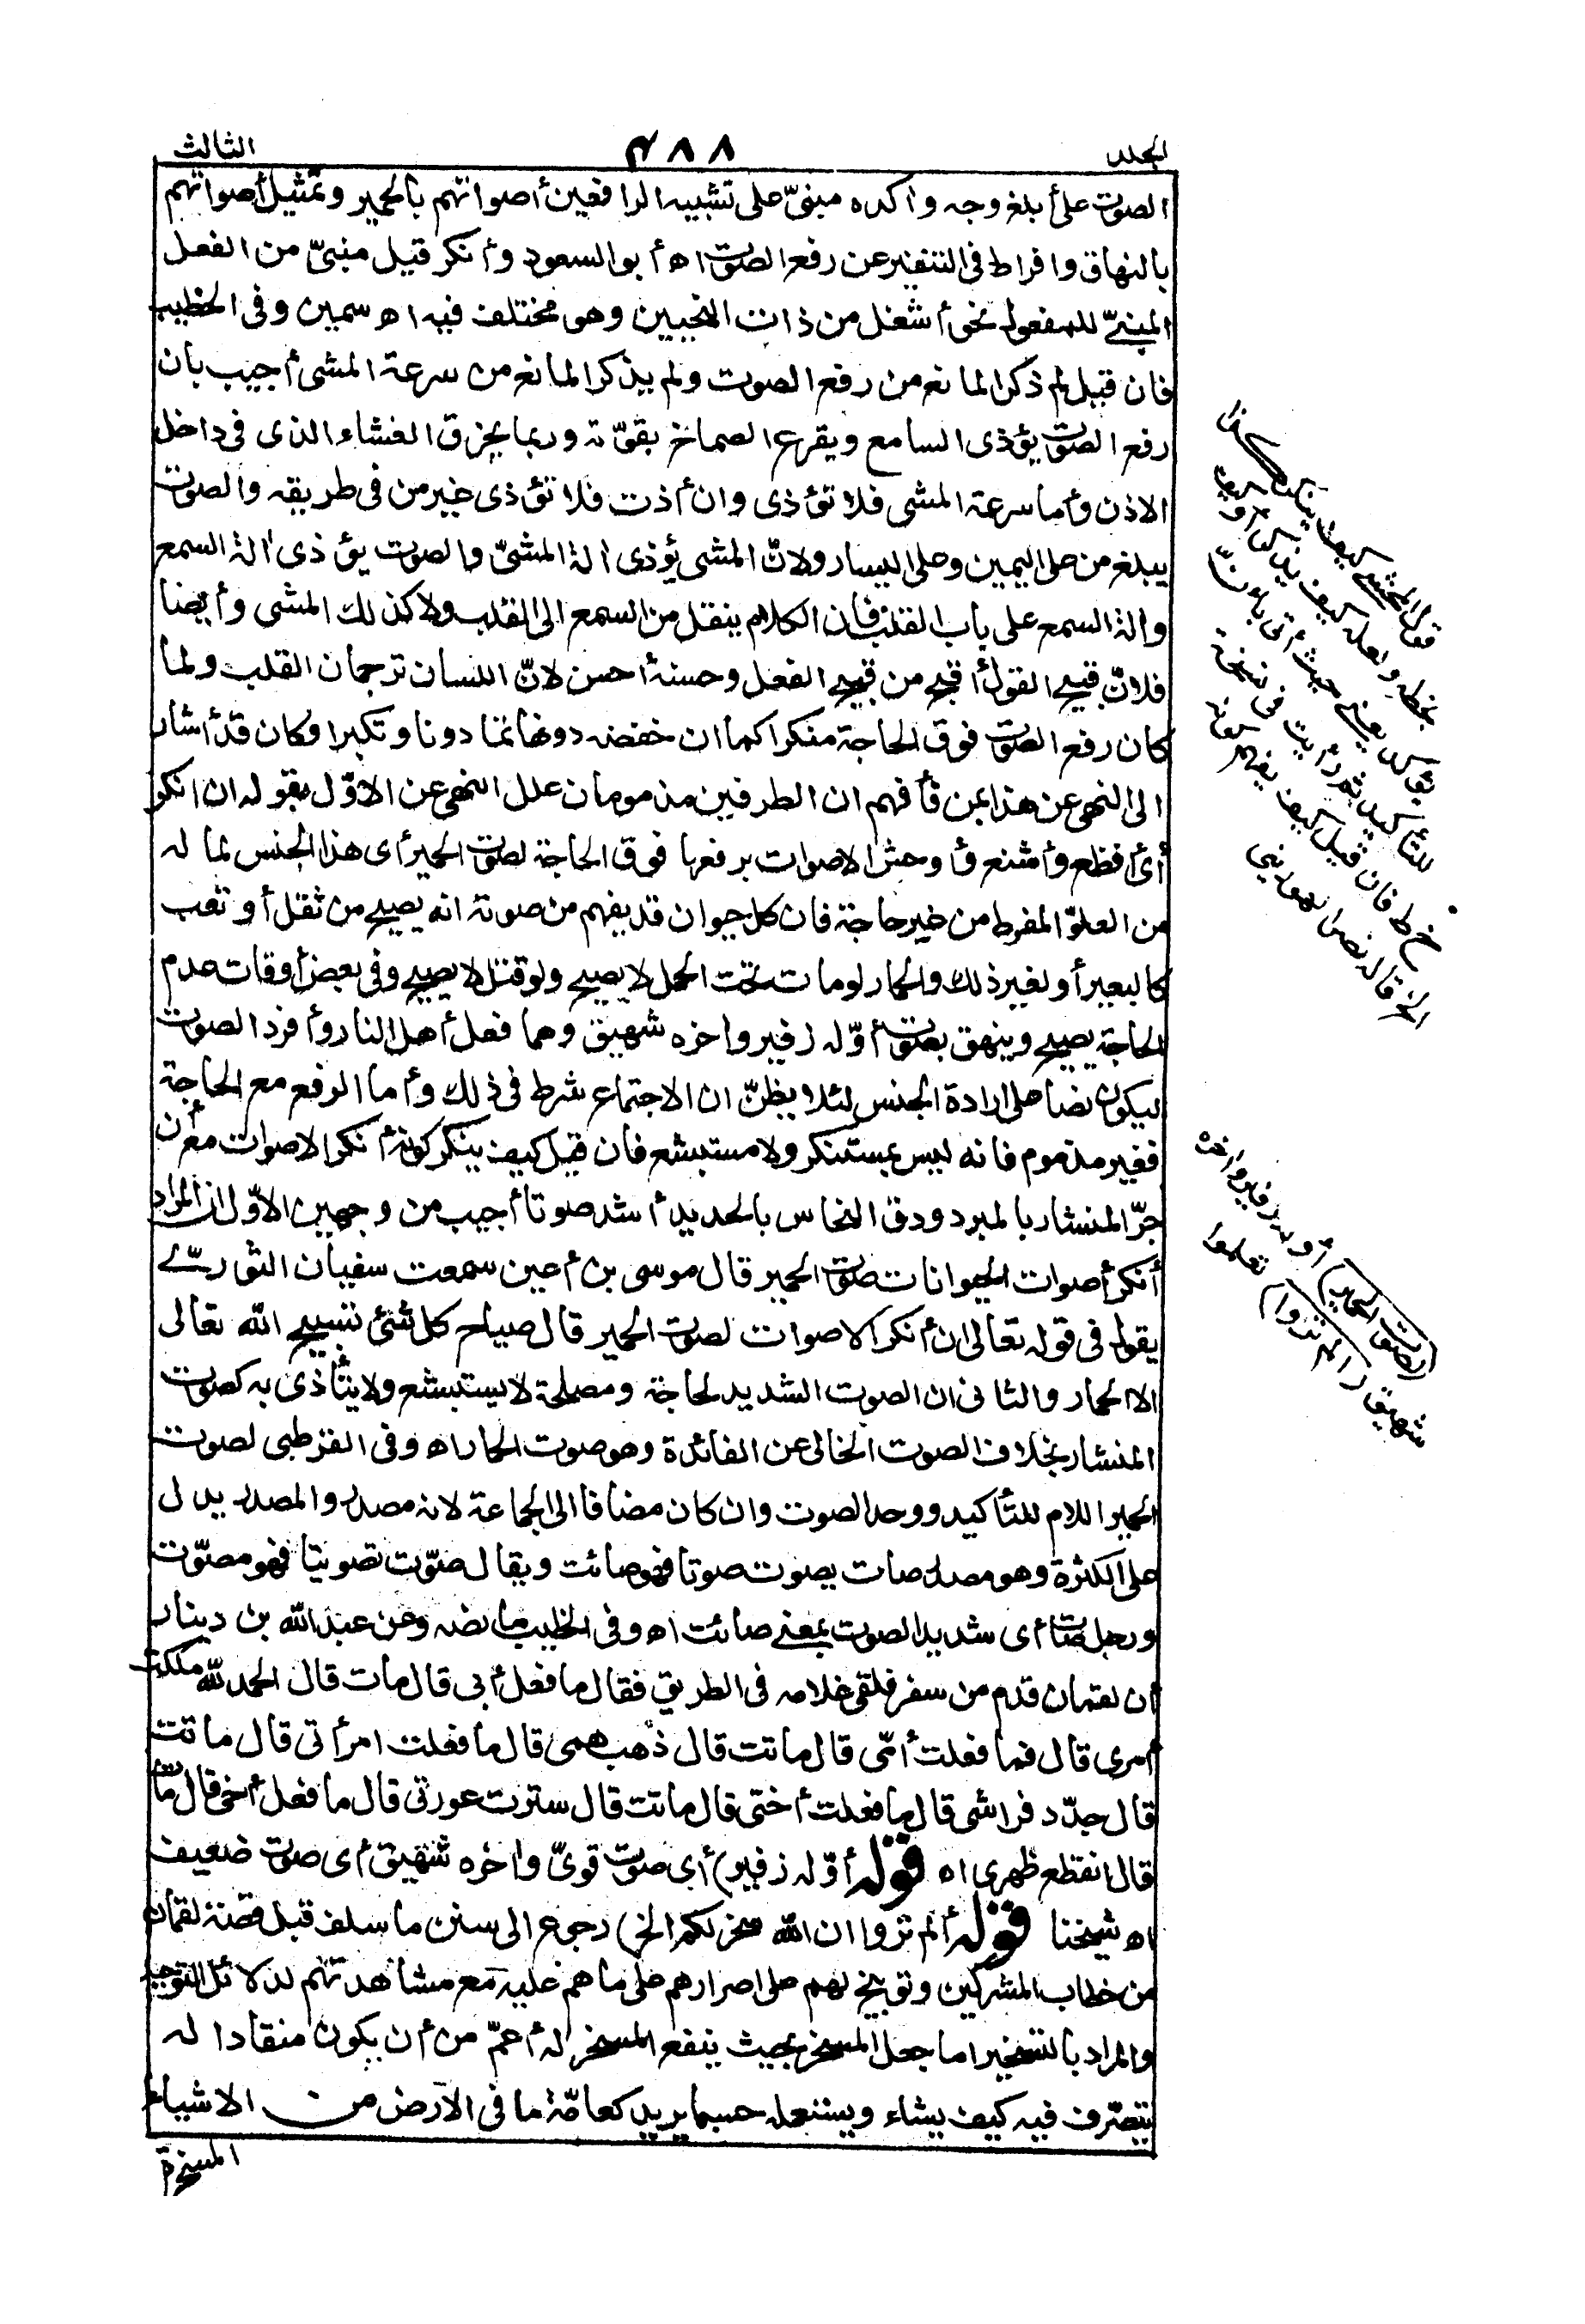 المجلد ٤٨٨ الثالث
الصوت على أبلغ وجه وأكده مبنىّ على تشبيه الرافعين أصواتهم بالحمير وتمثيل أصواتهم
بالنهاق وافراط فى التنفير عن رفع الصوت اه أبو السعود وأنكر قيل مبنىّ من الفعل
المبنىّ للمفعول نحو أشغل من ذات النحيين وهو مختلف فيه اه سمين وفى الخطيب
فان قيل لم ذكر المانع من رفع الصوت ولم يذكر المانع من سرعة المشى أجيب بان
رفع الصوت يؤذى السامع ويقرع الصماخ بقوّته وربما يخرق الغشاء الذى فى داخل
الاذن وأما سرعة المشى فلا تؤذى وان أذت فلا تؤذى غير من فى طريقه والصوت
يبلغ من على اليمين وعلى اليسار ولانّ المشى يؤذى آلة المشىّ والصوت يؤذى آلة السمع
وآلة السمع على باب القلب فان الكلام ينقل من السمع الى القلب ولا كذلك المشى وأيضا
فلانّ قبيح القول أقبح من قبيح الفعل وحسنه أحسن لانّ اللسان ترجمان القلب ولما
كان رفع الصوت فوق الحاجة منكرا كما ان خفضه دونها تماوتا وتكبرا وكان قد أشار
الى النهى عن هذا بمن فأفهم ان الطرفين مذمومان علل النهى عن الاوّل بقوله ان انكر
أى أفظع وأشنع وأوحش الاصوات برفعها فوق الحاجة لصوت الحمير أى هذا الجنس لما له
من العلوّ المفرط من غير حاجة فان كل حيوان قد يفهم من صوته انه يصيح من ثقل أو تعب
كالبعير أو لغير ذلك والحمار لو مات تحت الحمل لا يصيح ولو قتل لا يصيح وفى بعض أوقات عدم
الحاجة يصيح وينهق بصوت أوّله زفير وآخره شهيق وهما فعل أهل النار وأفرد الصوت
ليكون نصا على ارادة الجنس لئلا يظنّ ان الاجتماع شرط فى ذلك وأما الرفع مع الحاجة
فغير مذموم فانه ليس بمستنكر ولا مستبشع فان قيل كيف ينكر كونه أنكر الاصوات مع أن
جرّ المنشار بالمبرد ودق النحاس بالحديد أشد صوتا أجيب من وجهين الاوّل ان المراد
أنكر أصوات الحيوانات صوت الحمير قال موسى بن أعين سمعت سفيان الثورىّ
يقول فى قوله تعالى ان أنكر الاصوات لصوت الحمير قال صياح كل شئ تسبيح الله تعالى
الا الحمار والثانى ان الصوت الشديد لحاجة ومصلحة لا يستبشع ولا يتأذى به كصوت
المنشار بخلاف الصوت الخالى عن الفائدة وهو صوت الحمار اه وفى القرطبى لصوت
الحمير اللام للتأكيد ووحد الصوت وان كان مضافا الى الجماعة لانه مصدر والمصدر يدل
على الكثرة وهو مصدر صات يصوت صوتا فهو صائت ويقال صوّت تصويتا فهو مصوّت
ورجل صات أى شديد الصوت بمعنى صائت اه وفى الخطيب ما نصه وعن عبد الله بن دينار
أن لقمان قدم من سفر فلقى غلامه فى الطريق فقال ما فعل أبى قال مات قال الحمد لله ملكت
أمرى قال فما فعلت أمّى قال ماتت قال ذهب همى قال ما فعلت امرأتى قال ماتت
قال جدّد فراشى قال ما فعلت أختى قال ماتت قال سترت عورتى قال ما فعل أخى قال مات
قال انقطع ظهرى اه قوله أوّله زفير) أى صوت قوىّ وآخره شهيق أى صوت ضعيف
اه شيخنا قوله ألم تروا ان الله سخر لكم الخ) رجوع الى سنن ما سلف قبل قصة لقمان
من خطاب المشركين وتوبيخ لهم على اصرارهم على ما هم عليه مع مشاهدتهم لدلائل التوحيد
والمراد بالتسخير اما جعل المسخر بحيث ينفع المسخر له أعمّ من أن يكون منقادا له
يتصّرف فيه كيف يشاء ويستعمله حسبما يريد كعامّة ما فى الارض من الاشياء
المسخرة
قول المحشى كيف ينكر هكذا
بخطه ولعله كيف يذكر أو كيف
يؤكد يعنى حيث أتى بانّ
للتأكيد ثم رأيت فى نسخة
خط فان قيل كيف يفهم كونه
الخ قاله نصر الهورينى
(لصوت الحمير) أوله زفير وآخره
شهيق (ألم تروا) تعلموا